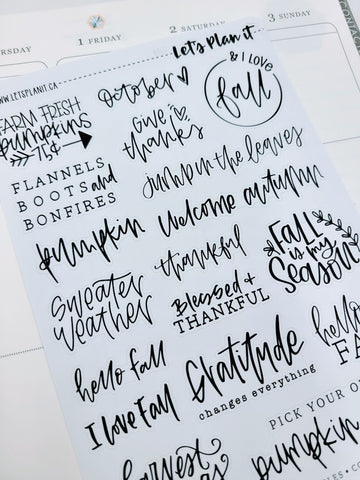 1 FRIDAY
2 SATURDAY
3 SUNDAY
WWW.LETSPLANIT.CA
Let's Plan it
FARM FRESH
pumpkins
75¢
October
& I LOVE
fall
give
thanks
FLANNELS
BOOTS and
BONFIRES
jump in the leaves
pumpkin
Welcome autumn
sweater
weather
thankful
Blessed &
THANKFUL
FALL
is my
Season
hello fall
I love Fall
Gratitude
changes everything
hello
FA
PICK YOUR O
harvest
pumpkin